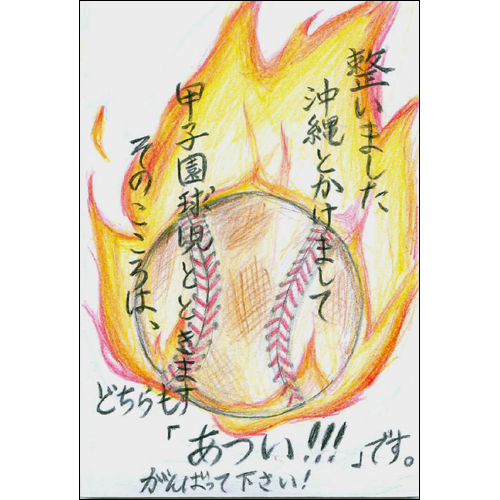 整いました
沖縄とかけまして
甲子園球児とときます
そのこころは、
どちらも
「あつい!!!」です。
がんばって下さい!